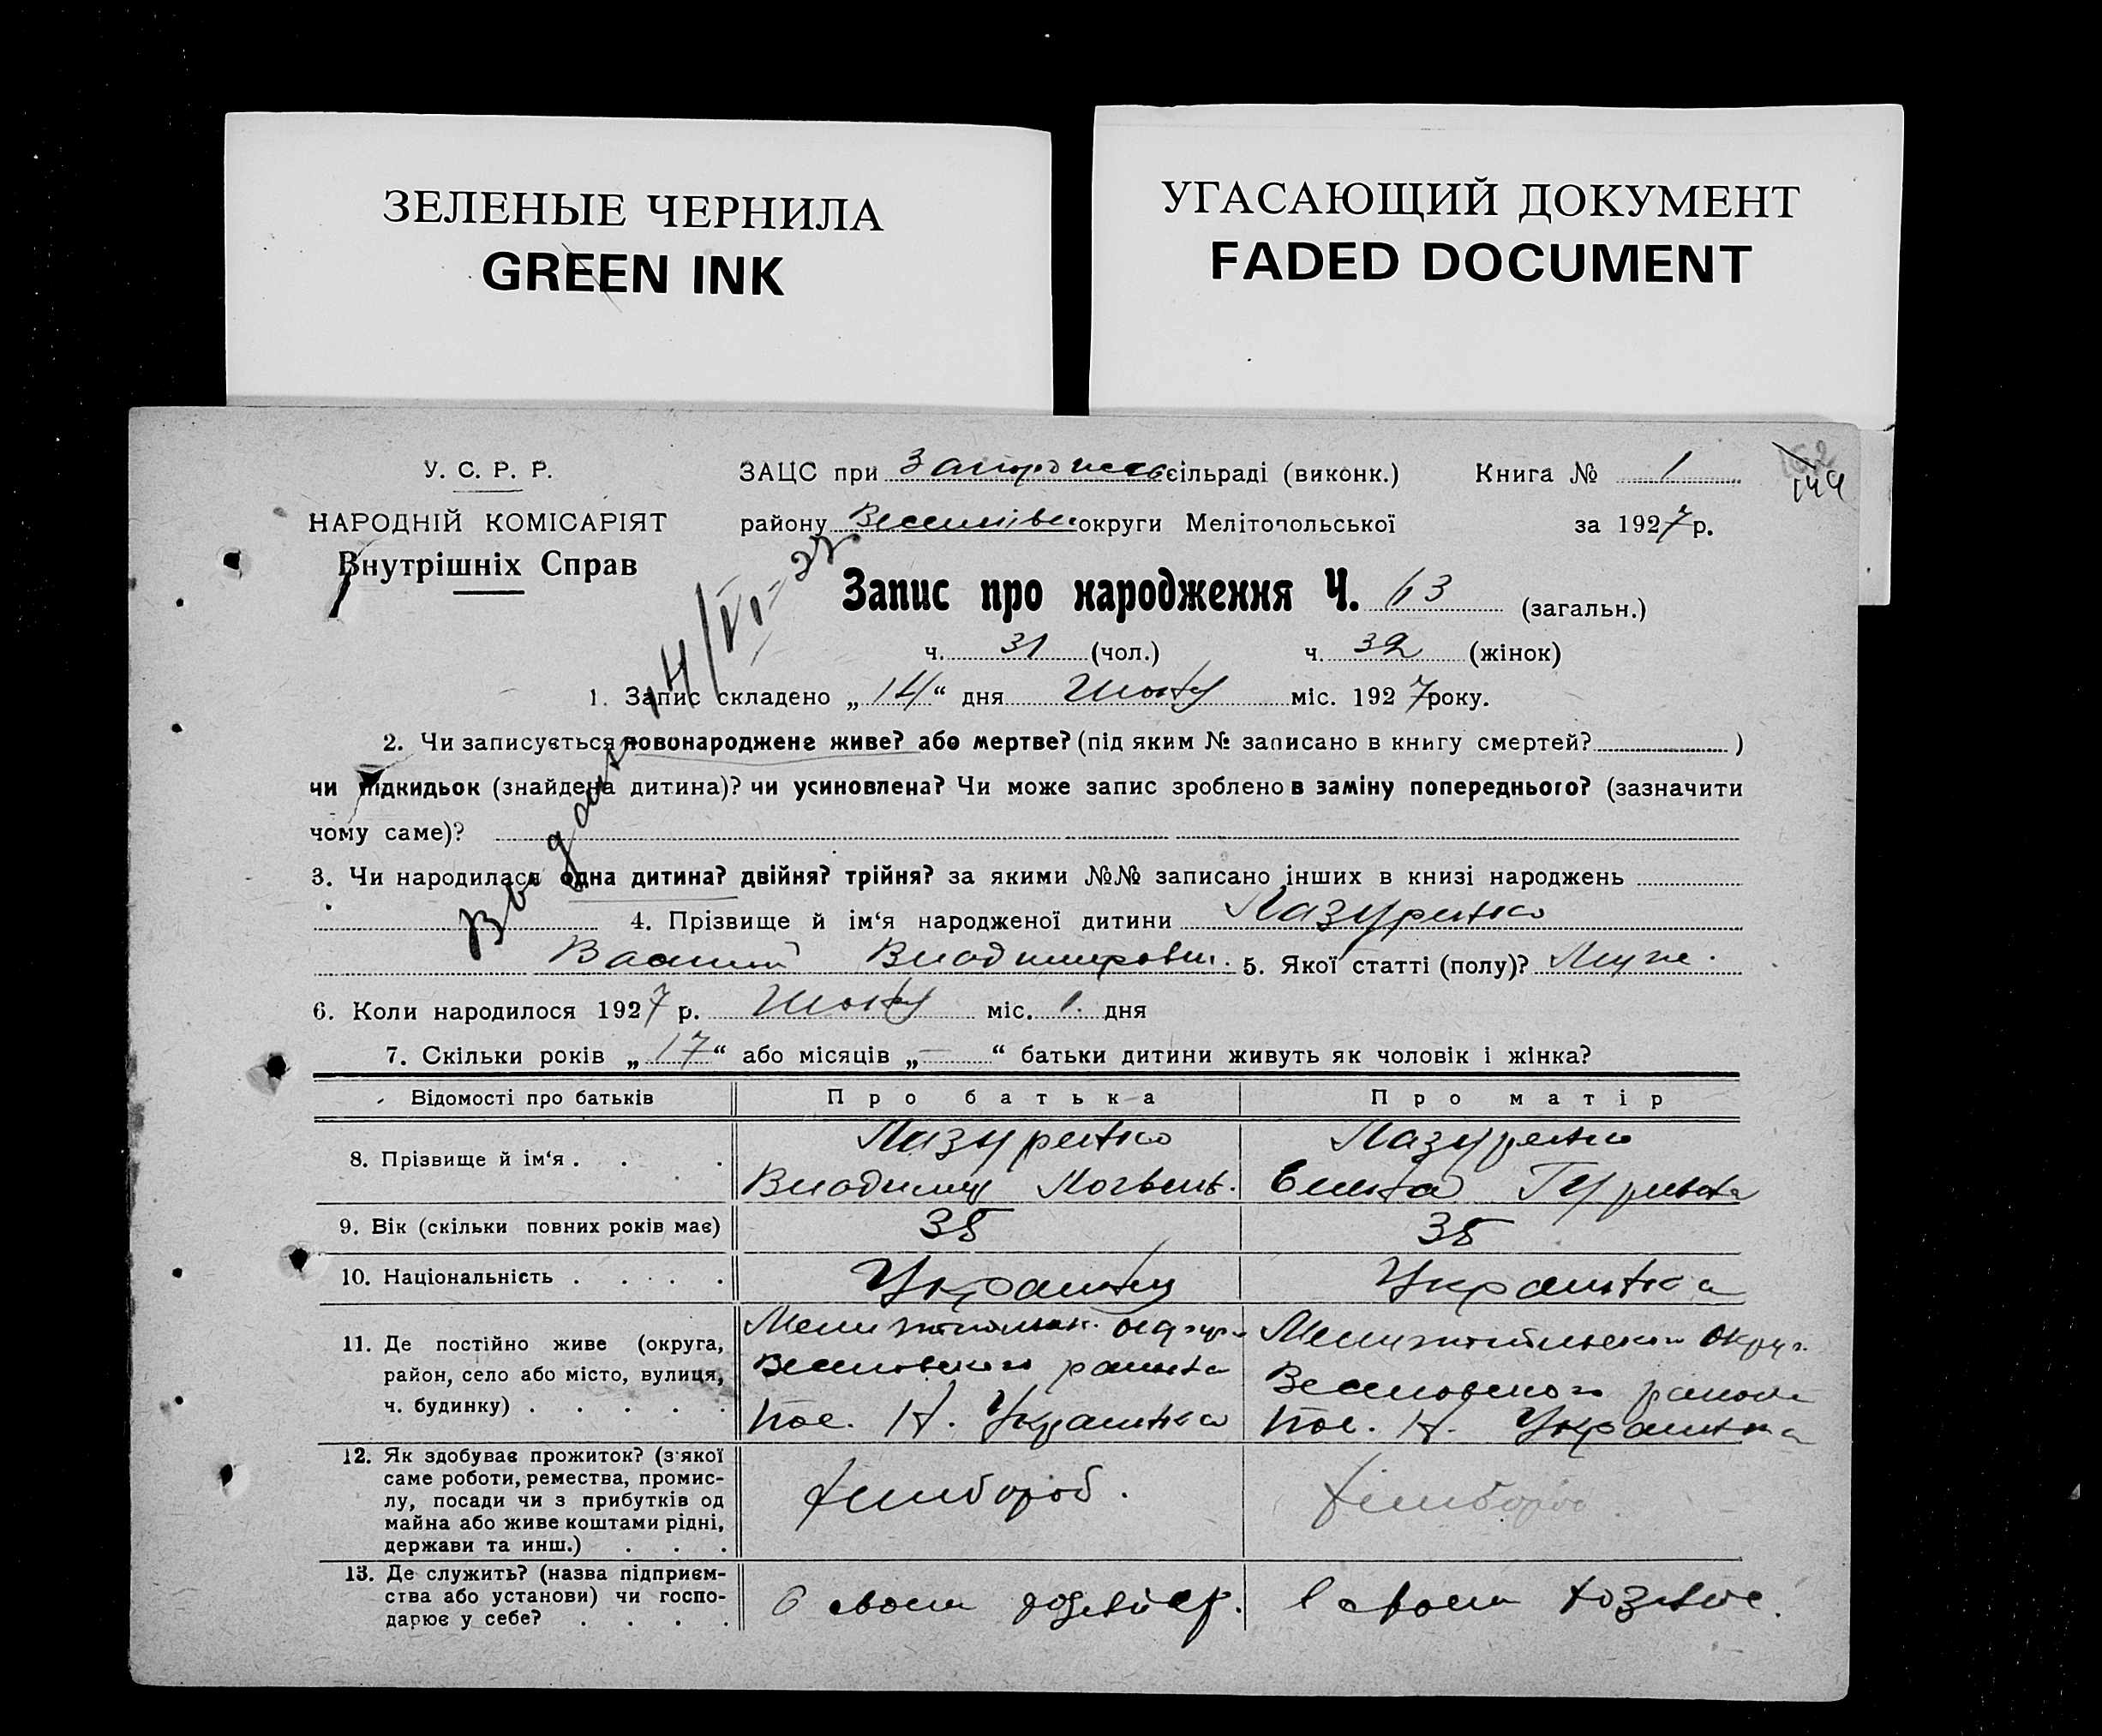 ЗЕЛЕНЫЕ ЧЕРНИЛА
GREEN INK
УГАСАЮЩИЙ ДОКУМЕНТ
FADED DOCUMENT
У. С. Р. Р.
НАРОДНІЙ КОМІСАРІЯТ
Внутрішніх Справ
ЗАЦС при сільраді (виконк.) Книга № 1
144
району округи Мелітопольської за 1927 р.
14/VI-27
Запис про народження Ч. 63 (загальн.)
ч. 31 (чол.) ч. 32 (жінок)
1. Запис складено „14“ дня Июня міс. 1927 року.
2. Чи записується новонароджене живе? або мертве? (під яким № записано в книгу смертей? )
чи підкидьок (знайдена дитина)? чи усиновлена? Чи може запис зроблено в заміну попереднього? (зазначити
чому саме)?
3. Чи народилася одна дитина? двійня? трійня? за якими №№ записано інших в книзі народжень
4. Прізвище й ім‘я народженої дитини Лазуренко
Василий Владимирович. 5. Якої статті (полу)? Муж.
6. Коли народилося 1927 р. Июня міс. 1. дня
7. Скільки років „17“ або місяців „—“ батьки дитини живуть як чоловік і жінка?
Відомості про батьків Про батька Про матір
8. Прізвище й ім‘я . . . Лазуренко Лазуренко
Владимир Логвин. Елена
9. Вік (скільки повних років має) 38 38
10. Національність . . . . Украинец Украинка
11. Де постійно живе (округа, Мелитопольск. округ Мелитопольского округ.
район, село або місто, вулиця, Веселовского района Веселовского района
ч. будинку) . . . . . Пос. Н. Украинка Пос. Н. Украинка
12. Як здобуває прожиток? (з якої
саме роботи, ремества, промис-
лу, посади чи з прибутків од хлибороб. хлибороб
майна або живе коштами рідні,
держави та инш.) . . .
13. Де служить? (назва підприєм-
ства або установи) чи госпо- в своем в своем хозяйс.
дарює у себе? . . . .
Выдано